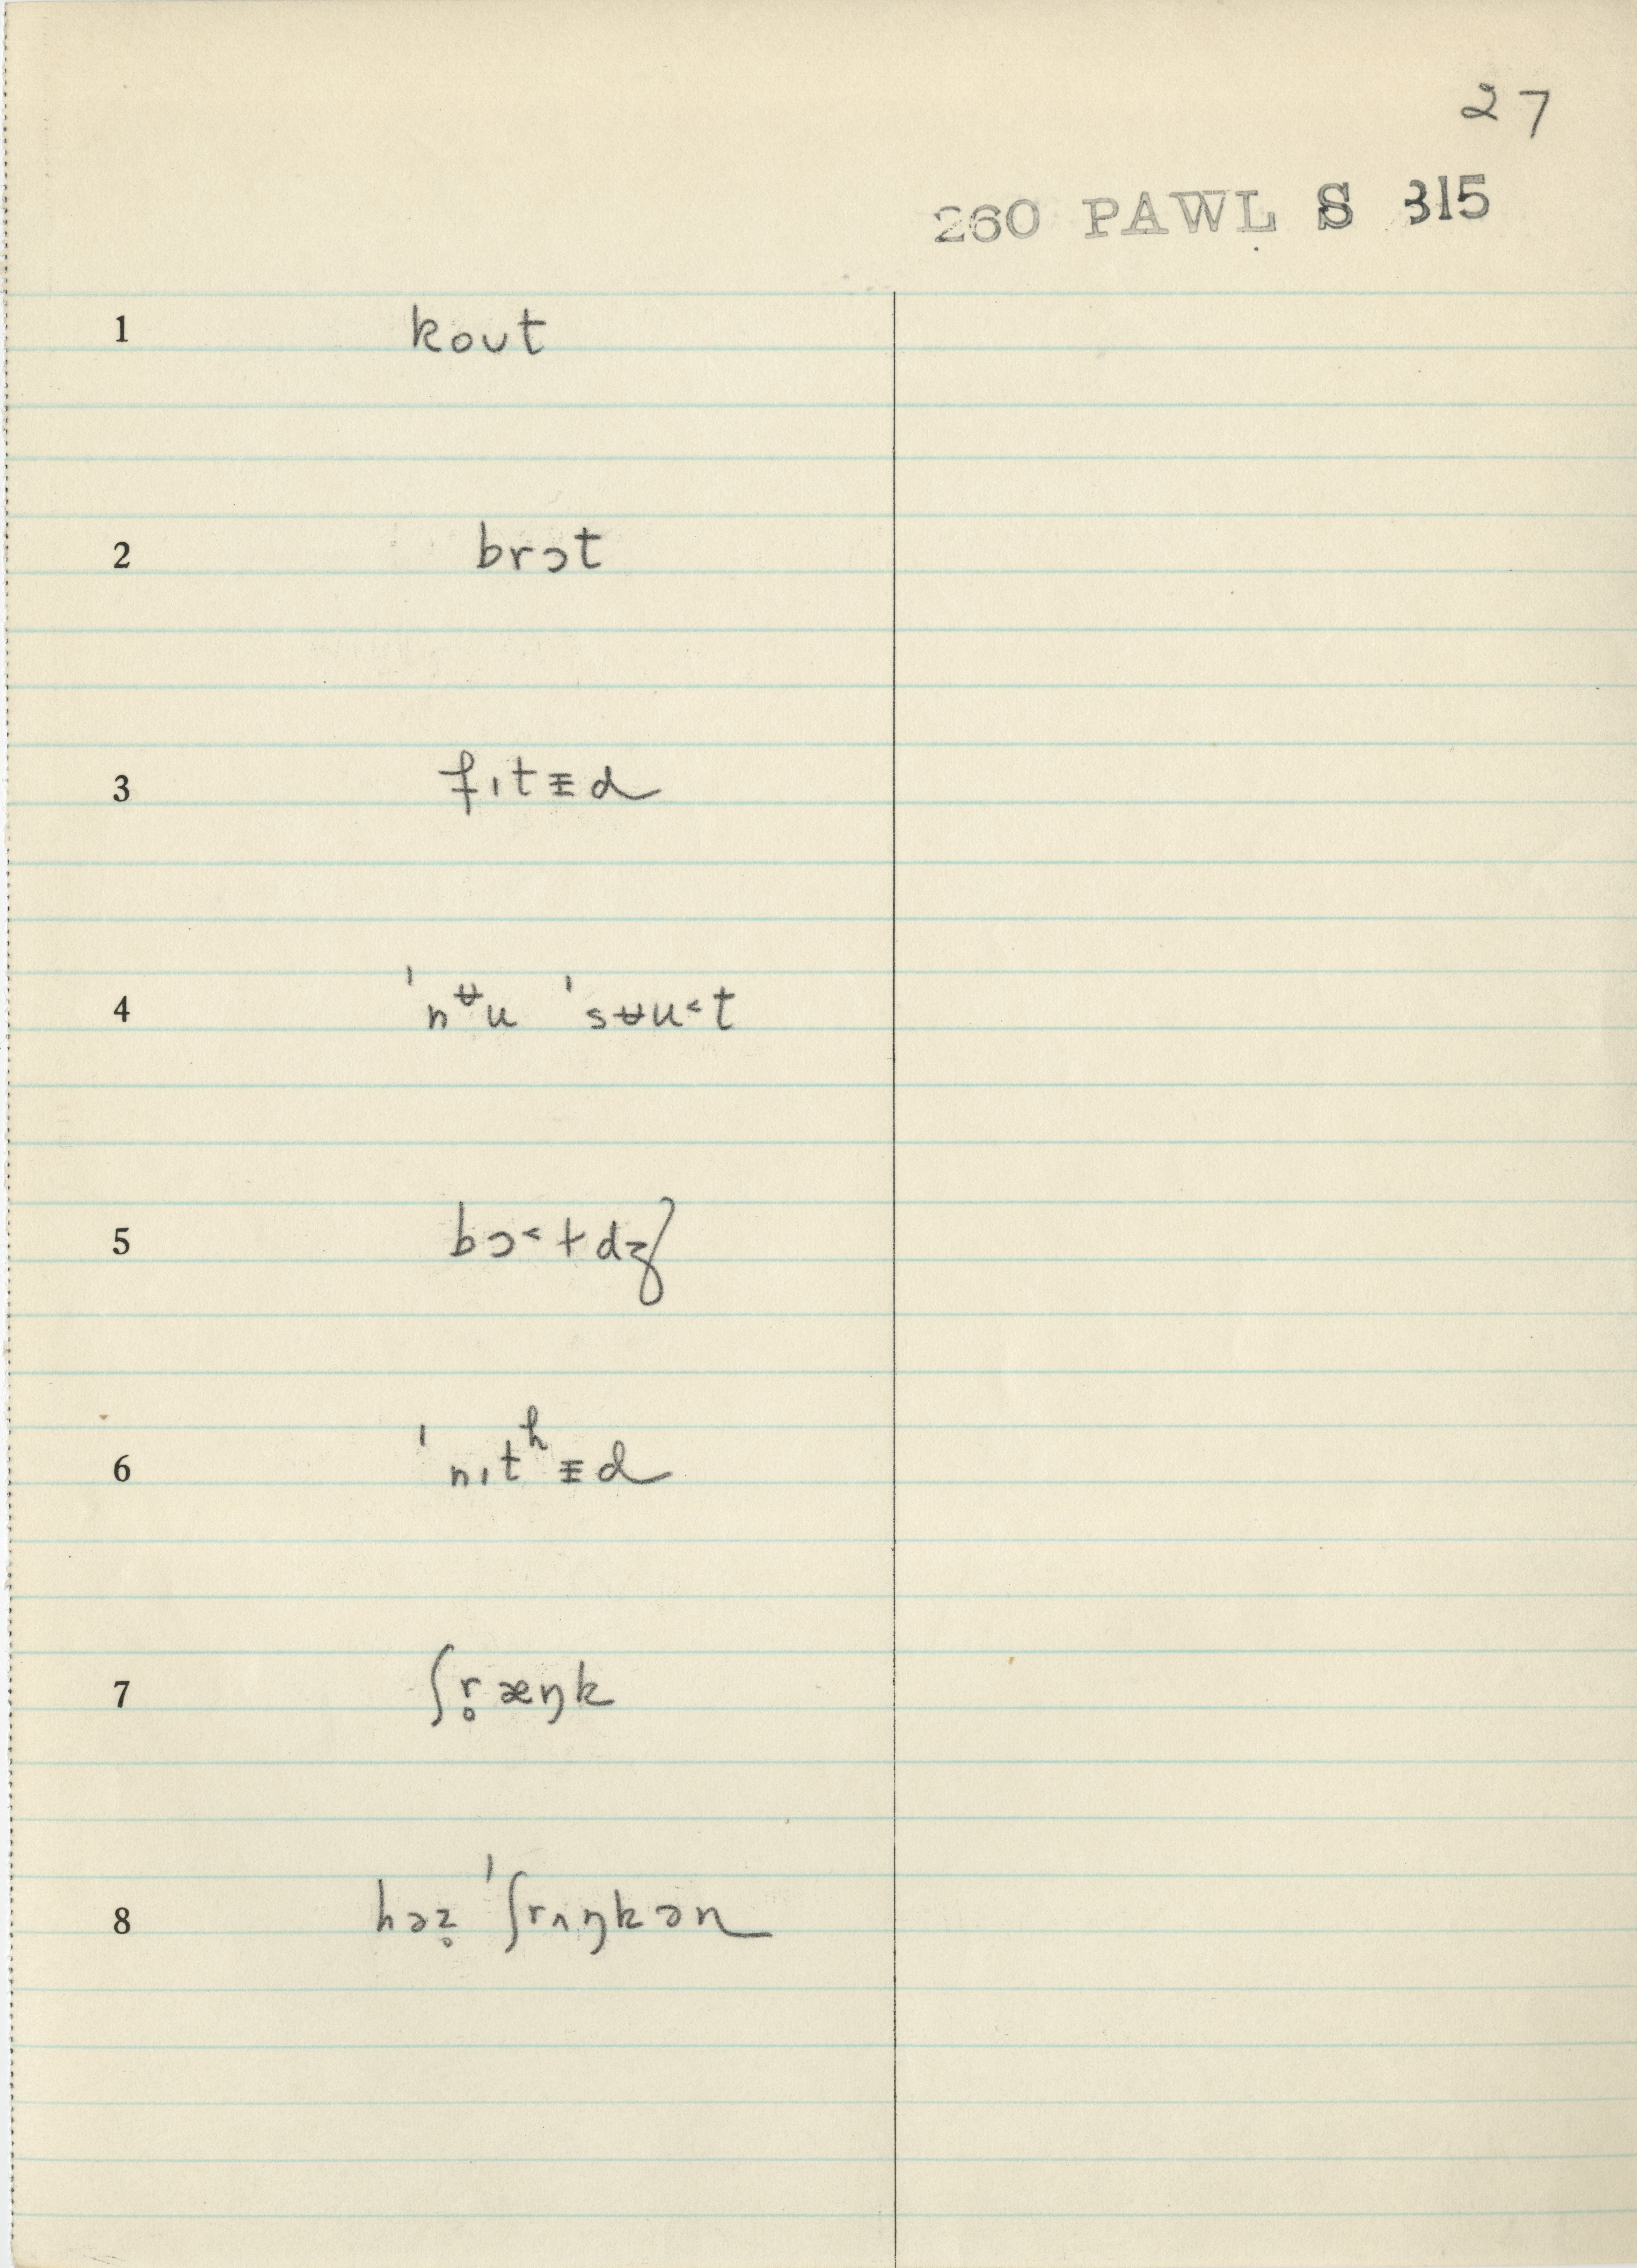 27
260 PAWL S 315
1 koʊt
2 brɔt
3 fɪtᵻd
4 ˈnᶶu ˈsᵿu˂t
5 bɔ˂tdʒ
6 ˈnɪtʰᵻd
7 ʃr̥æŋk
8 həz̥ ˈʃrʌŋkən